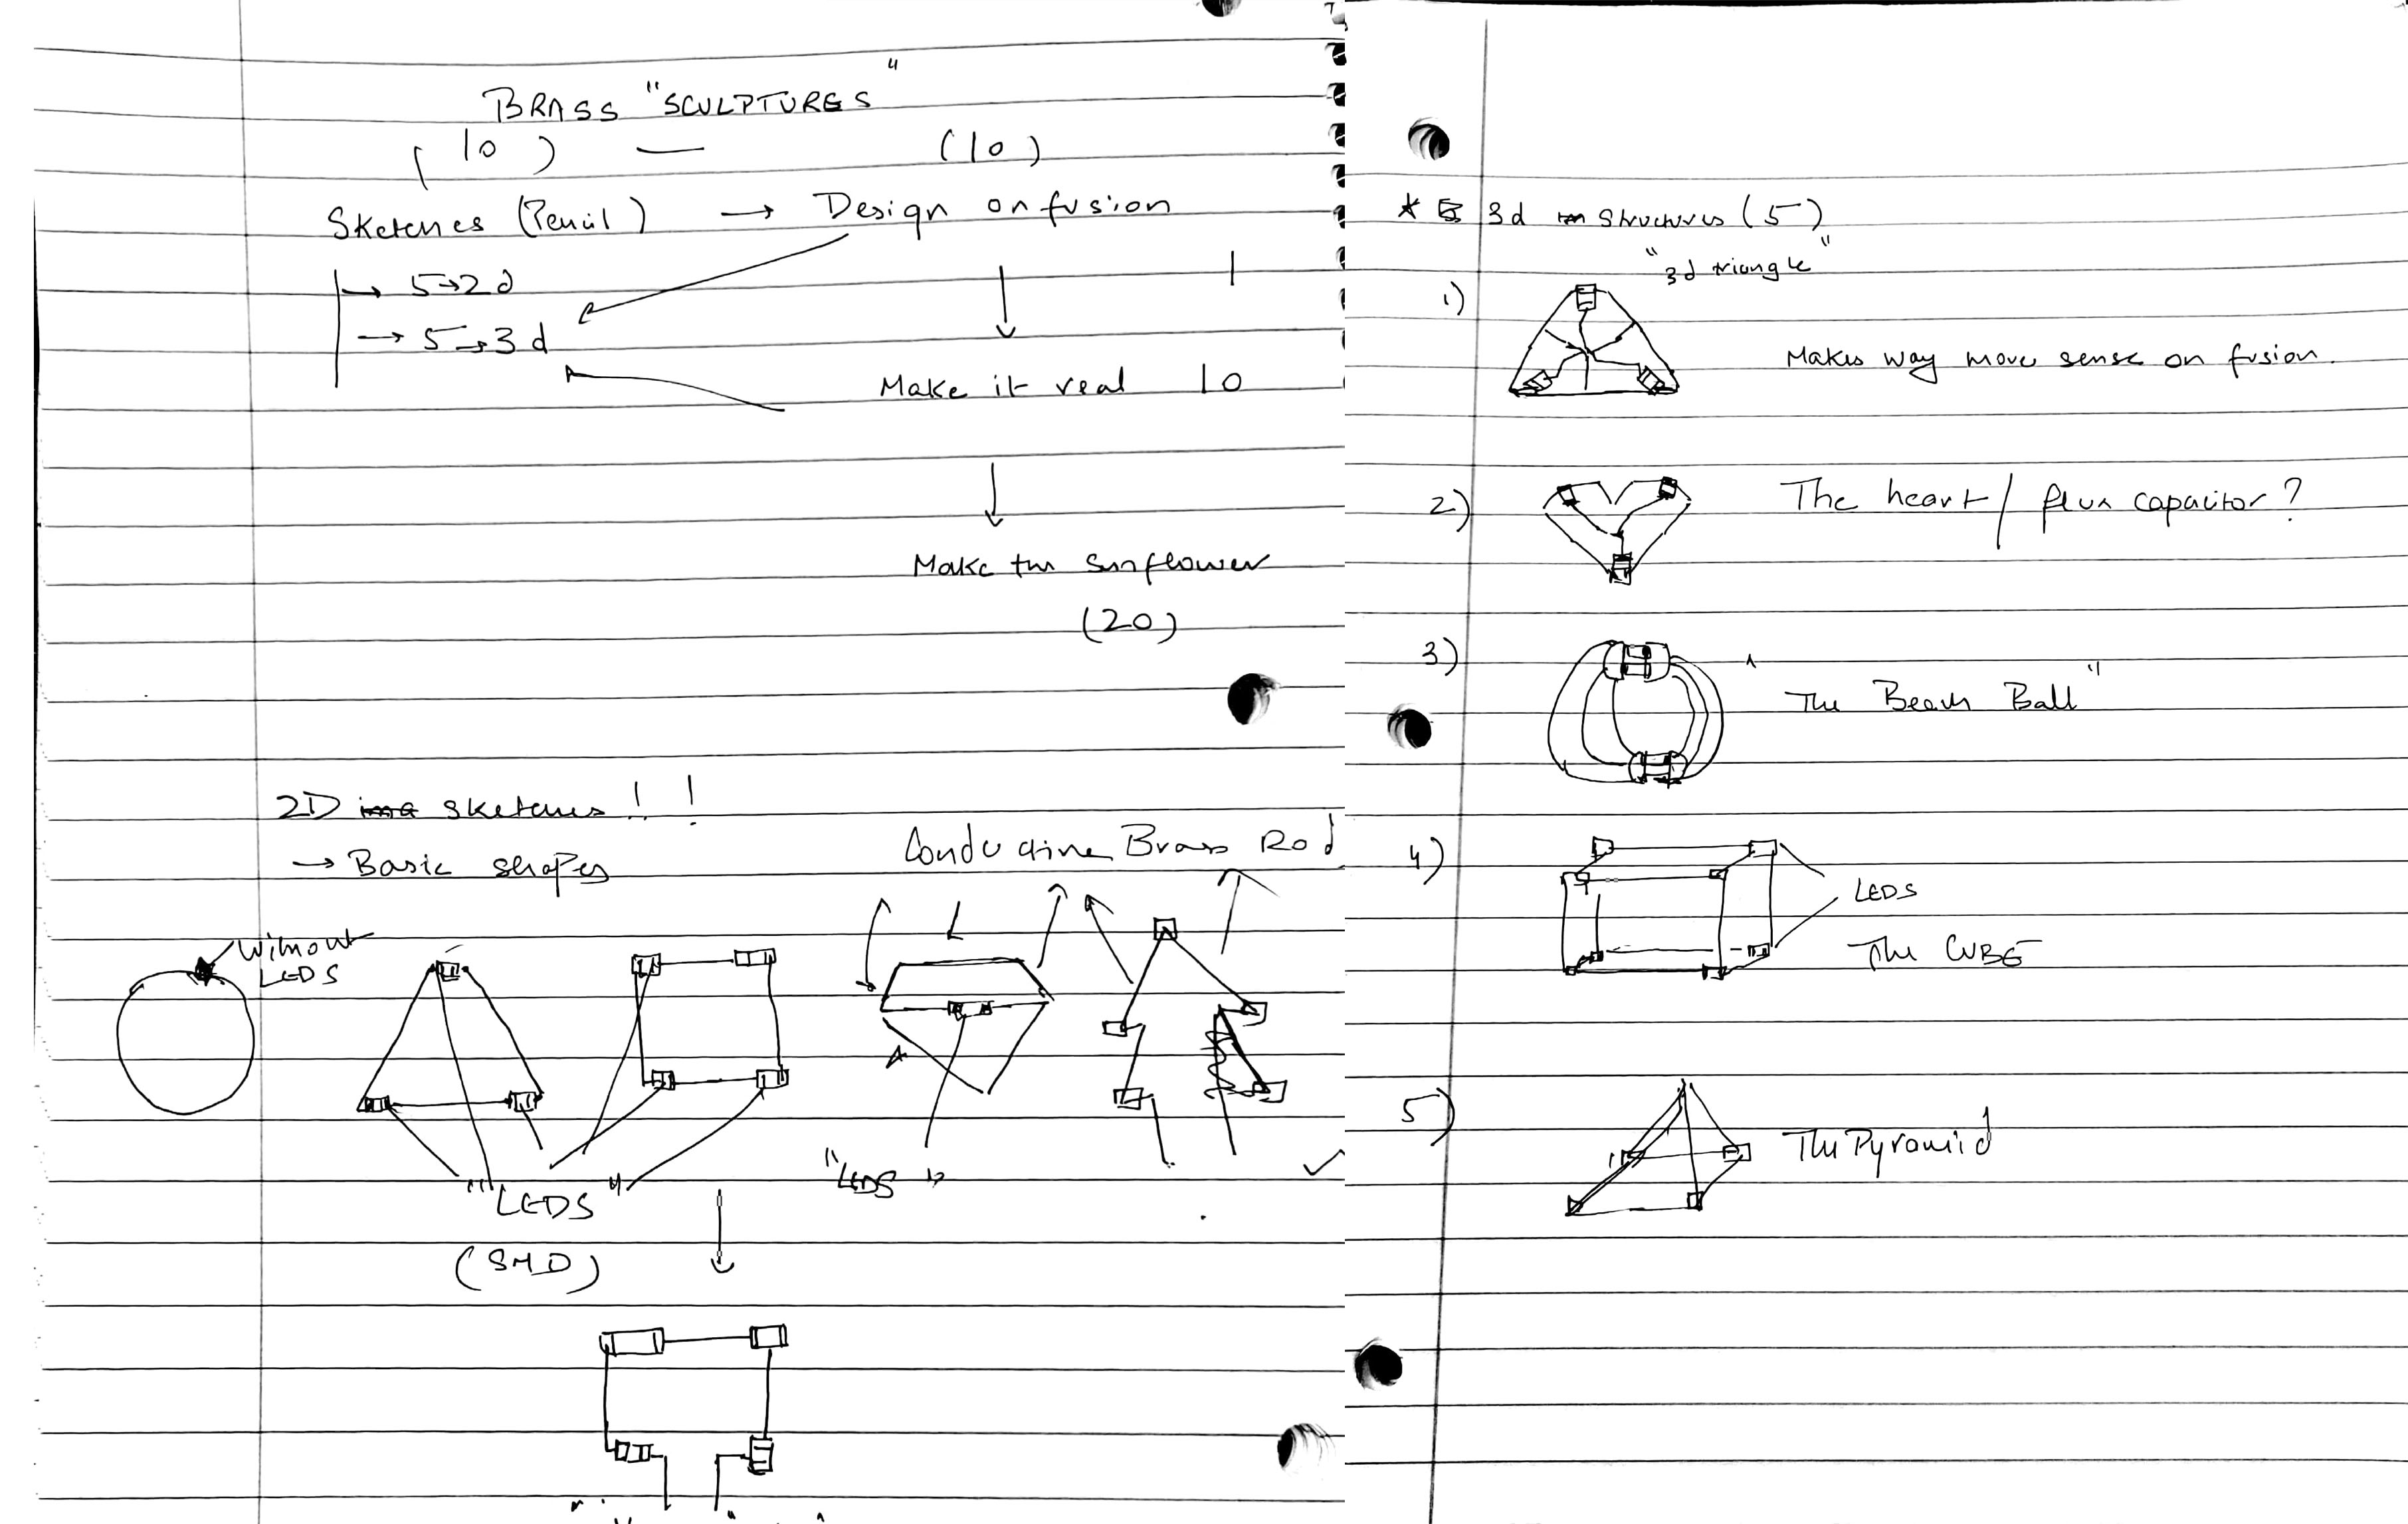 BRASS "SCULPTURES"
(10) — (10)
Sketches (Pencil) → Design on fusion
→ 5→2d
→ 5→3d
Make it real 10
Make the sunflower
(20)
2D sketches!!
→ Basic shapes
Conductive Brass Rod
Without
LEDS
"LEDS"
"LEDS"
(SMD)
* 3d structures (5)
1) "3d triangle"
Makes way more sense on fusion.
2) The heart / flux capacitor?
3) "The Beam Ball"
4) LEDS
The CUBE
5) The Pyramid